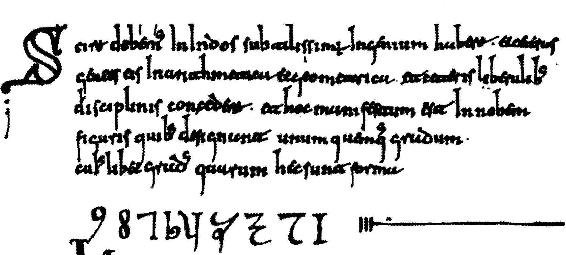 Scire debem᾽ in Indos subtilissimum ingenium habere. et ceteras
gentes eis In arithmetica et geometrica et ceteris liberalib᾽
disciplinis concedere. et hoc manifestum est In nobem
figuris quib᾽ designant unumquenq᾽ gradum.
cui᾽libet grad᾽ quarum hec sunt forma
9 8 7 6 5 4 3 2 1